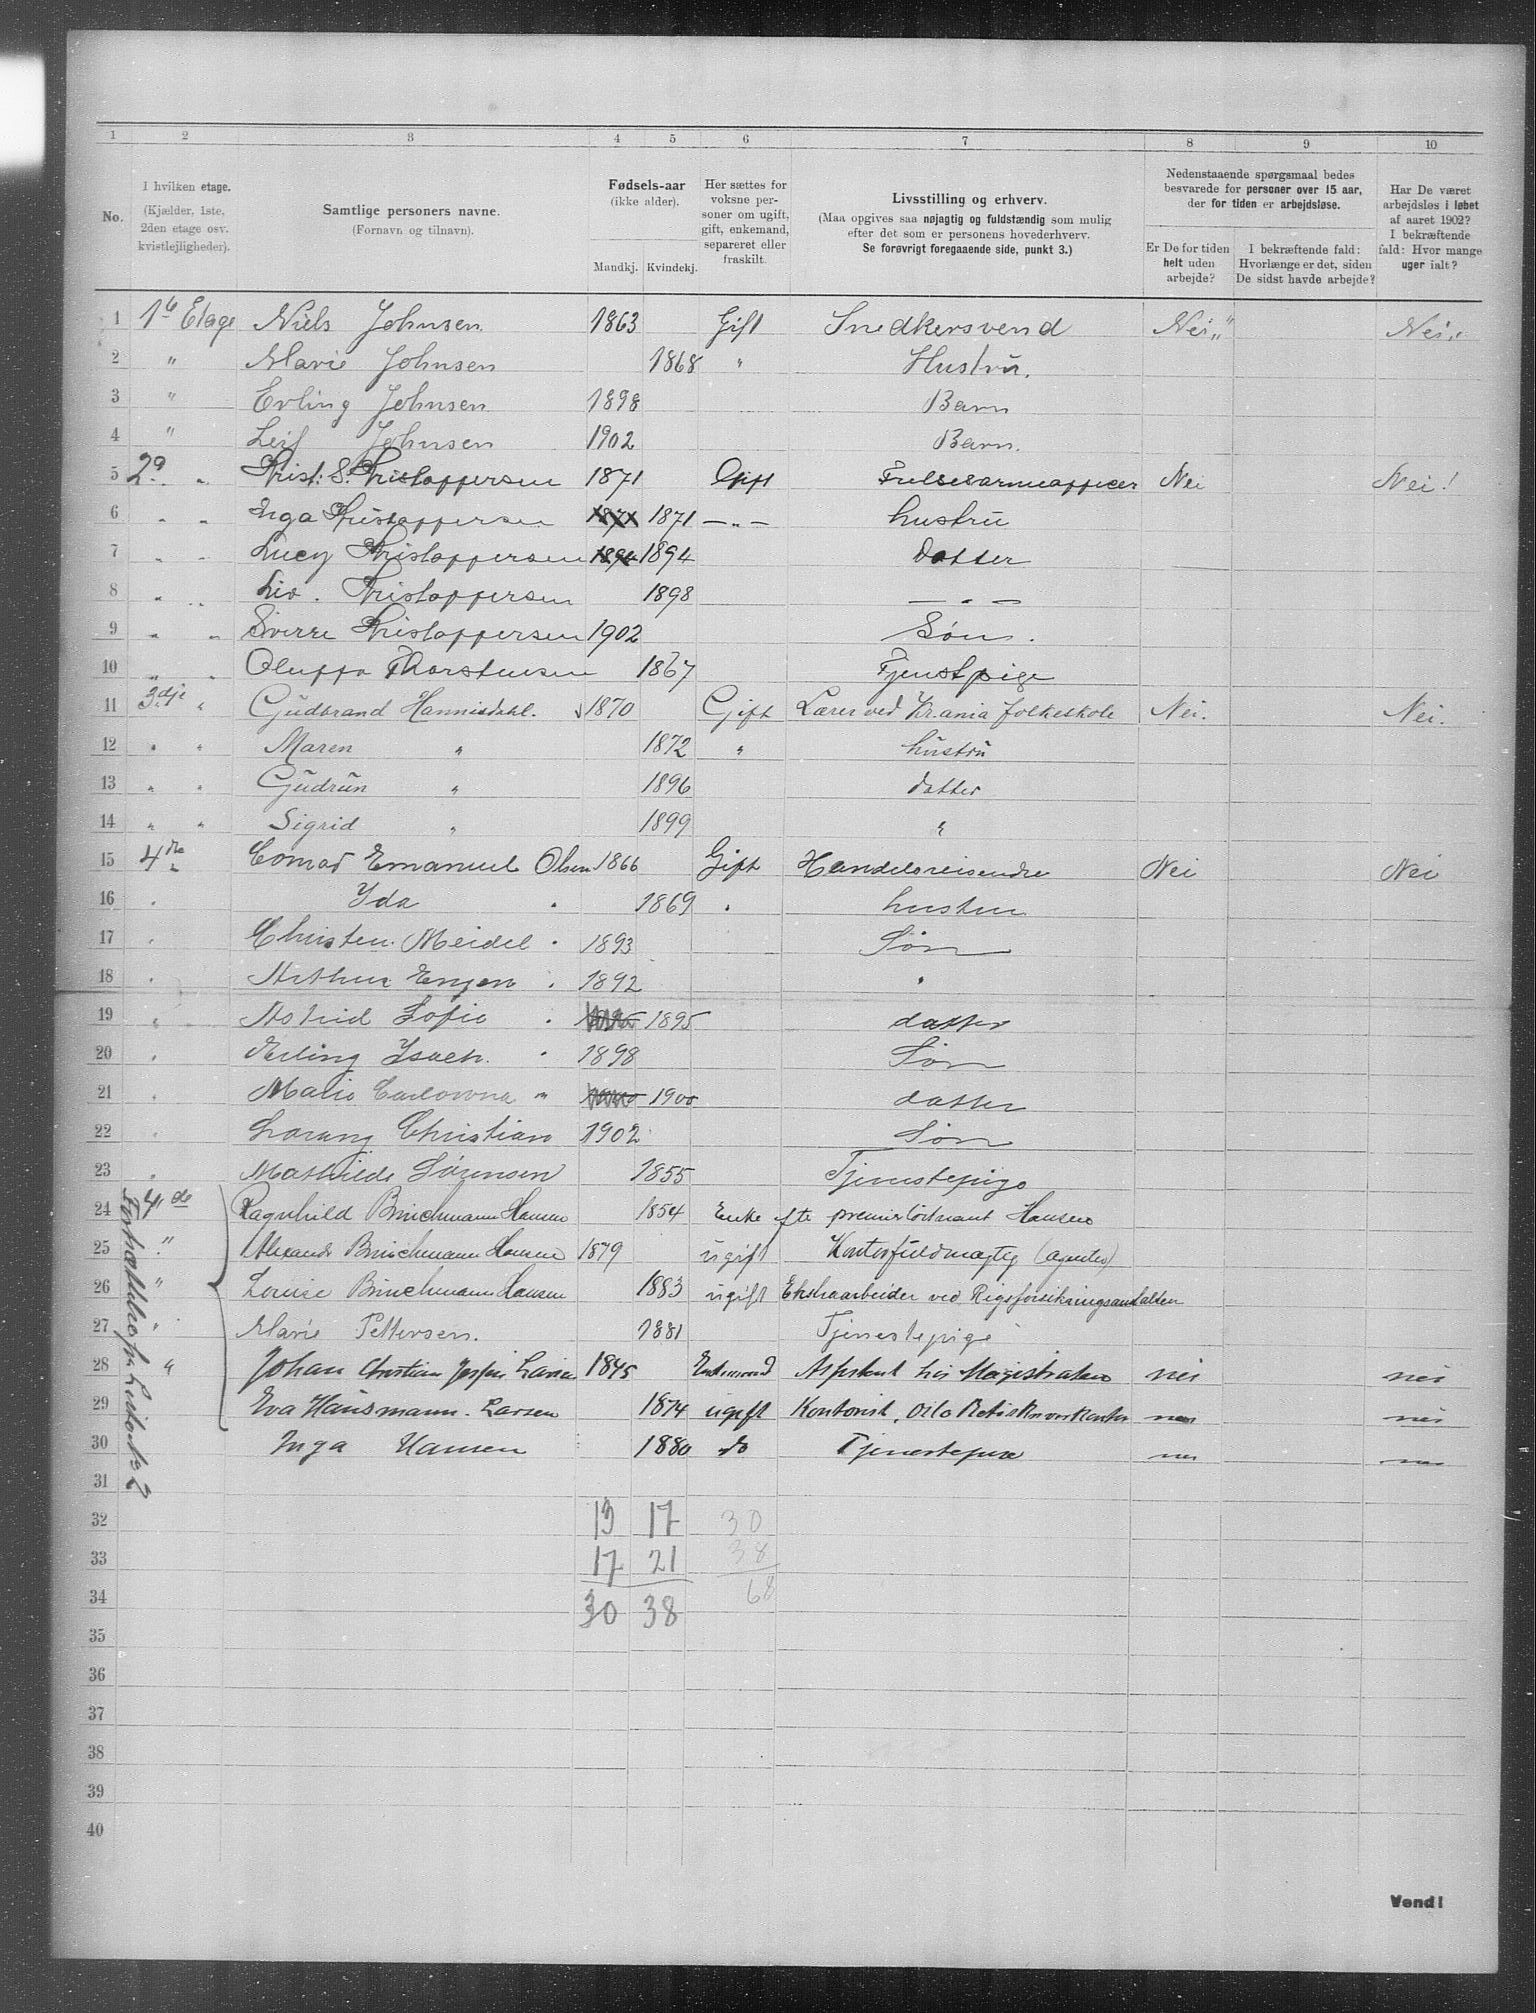 1 2 3 4 5 6 7 8 9 10
No.
I hvilken etage.
(Kjælder, 1ste,
2den etage osv.
kvistlejligheder).
Samtlige personers navne.
(Fornavn og tilnavn).
Fødsels-aar
(ikke alder).
Mandkj. Kvindekj.
Her sættes for
voksne per-
soner om ugift,
gift, enkemand,
separeret eller
fraskilt.
Livsstilling og erhverv.
(Maa opgives saa nøjagtig og fuldstændig som mulig
efter det som er personens hovederhverv.
Se forøvrigt foregaaende side, punkt 3.)
Nedenstaaende spørgsmaal bedes
besvarede for personer over 15 aar,
der for tiden er arbejdsløse.
Er De for tiden
helt uden
arbejde?
I bekræftende fald:
Hvorlænge er det, siden
De sidst havde arbejde?
Har De været
arbejdsløs i løbet
af aaret 1902?
I bekræftende
fald: Hvor mange
uger ialt?
1 1ste Etage Niels Johnsen 1863 Gift Snedkersvend Nei " Nei "
2 " Marie Johnsen 1868 " Hustru.
3 " Erling Johnsen 1898 Barn
4 " Leif Johnsen 1902 Barn.
5 2a " Krist. S. Kristoffersen 1871 Gift Frelsesarmeofficer Nei Nei!
6 " " Inga Kristoffersen 1871 1871 — " — hustru
7 " " Lucy Kristoffersen 1894 1894 Datter
8 " " Liv. Kristoffersen 1898 — " —
9 " " Sverre Kristoffersen 1902 Søn.
10 " " Oluffa Thorstensen 1867 Tjenstpige
11 3dje " Gudbrand Hannisdahl. 1870 Gift Lærer ved Kr.ania folkeskole Nei. Nei.
12 " " Maren " 1872 " hustru
13 " " Gudrun " 1896 datter
14 " " Sigrid " 1899 "
15 4de " Conrad Emanuel Olsen 1866 Gift Handelsreisende Nei Nei
16 " Yda " 1869 " hustru
17 " Christen Meidel " 1893 Søn
18 " Arthur Engen " 1892 "
19 " Astrid Sofie " 1895 datter
20 " Erling Isach. " 1898 Søn
21 " Marie Carlovna " 1900 datter
22 " Lorang Christian 1902 Søn
23 " Mathilde Sørensen 1855 Tjenestepige
24 4de Ragnhild Brinchmann Hansen 1854 Enke efter premierløitnant Hansen
25 " Alexander Brinchmann Hansen 1879 ugift Kontorfuldmægtig (agentur)
26 " Louise Brinchmann Hansen 1883 ugift Ekstraarbeider ved Rigsforsikringsanstalten
27 " Marie Pettersen. 1881 Tjenestepige
28 " Johan Christian Jesper Larsen 1845 Enkemand Assistent hos Magistraten nei nei
29 Eva Hausmann Larsen 1874 ugift Kontorist, Oslo nei nei
30 Inga Hansen 1880 do Tjenestepige nei nei
Fortsættelse fra Liste No 2
31
32 13 17 30
33 17 21 38
34 30 38 68
35
36
37
38
39
40
Vend!